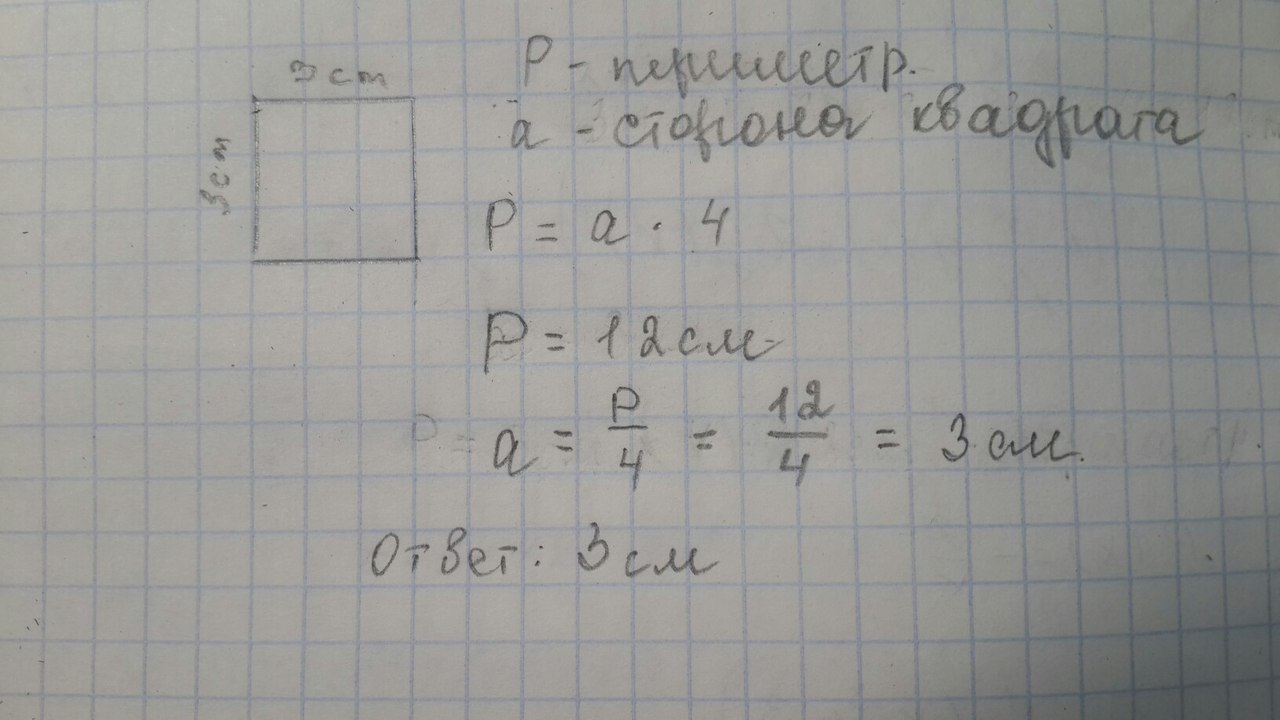 3 cm
P - периметр.
a - сторона квадрата
3 cm
P = a · 4
P = 12 см
a = P/4 = 12/4 = 3 см.
Ответ: 3 см